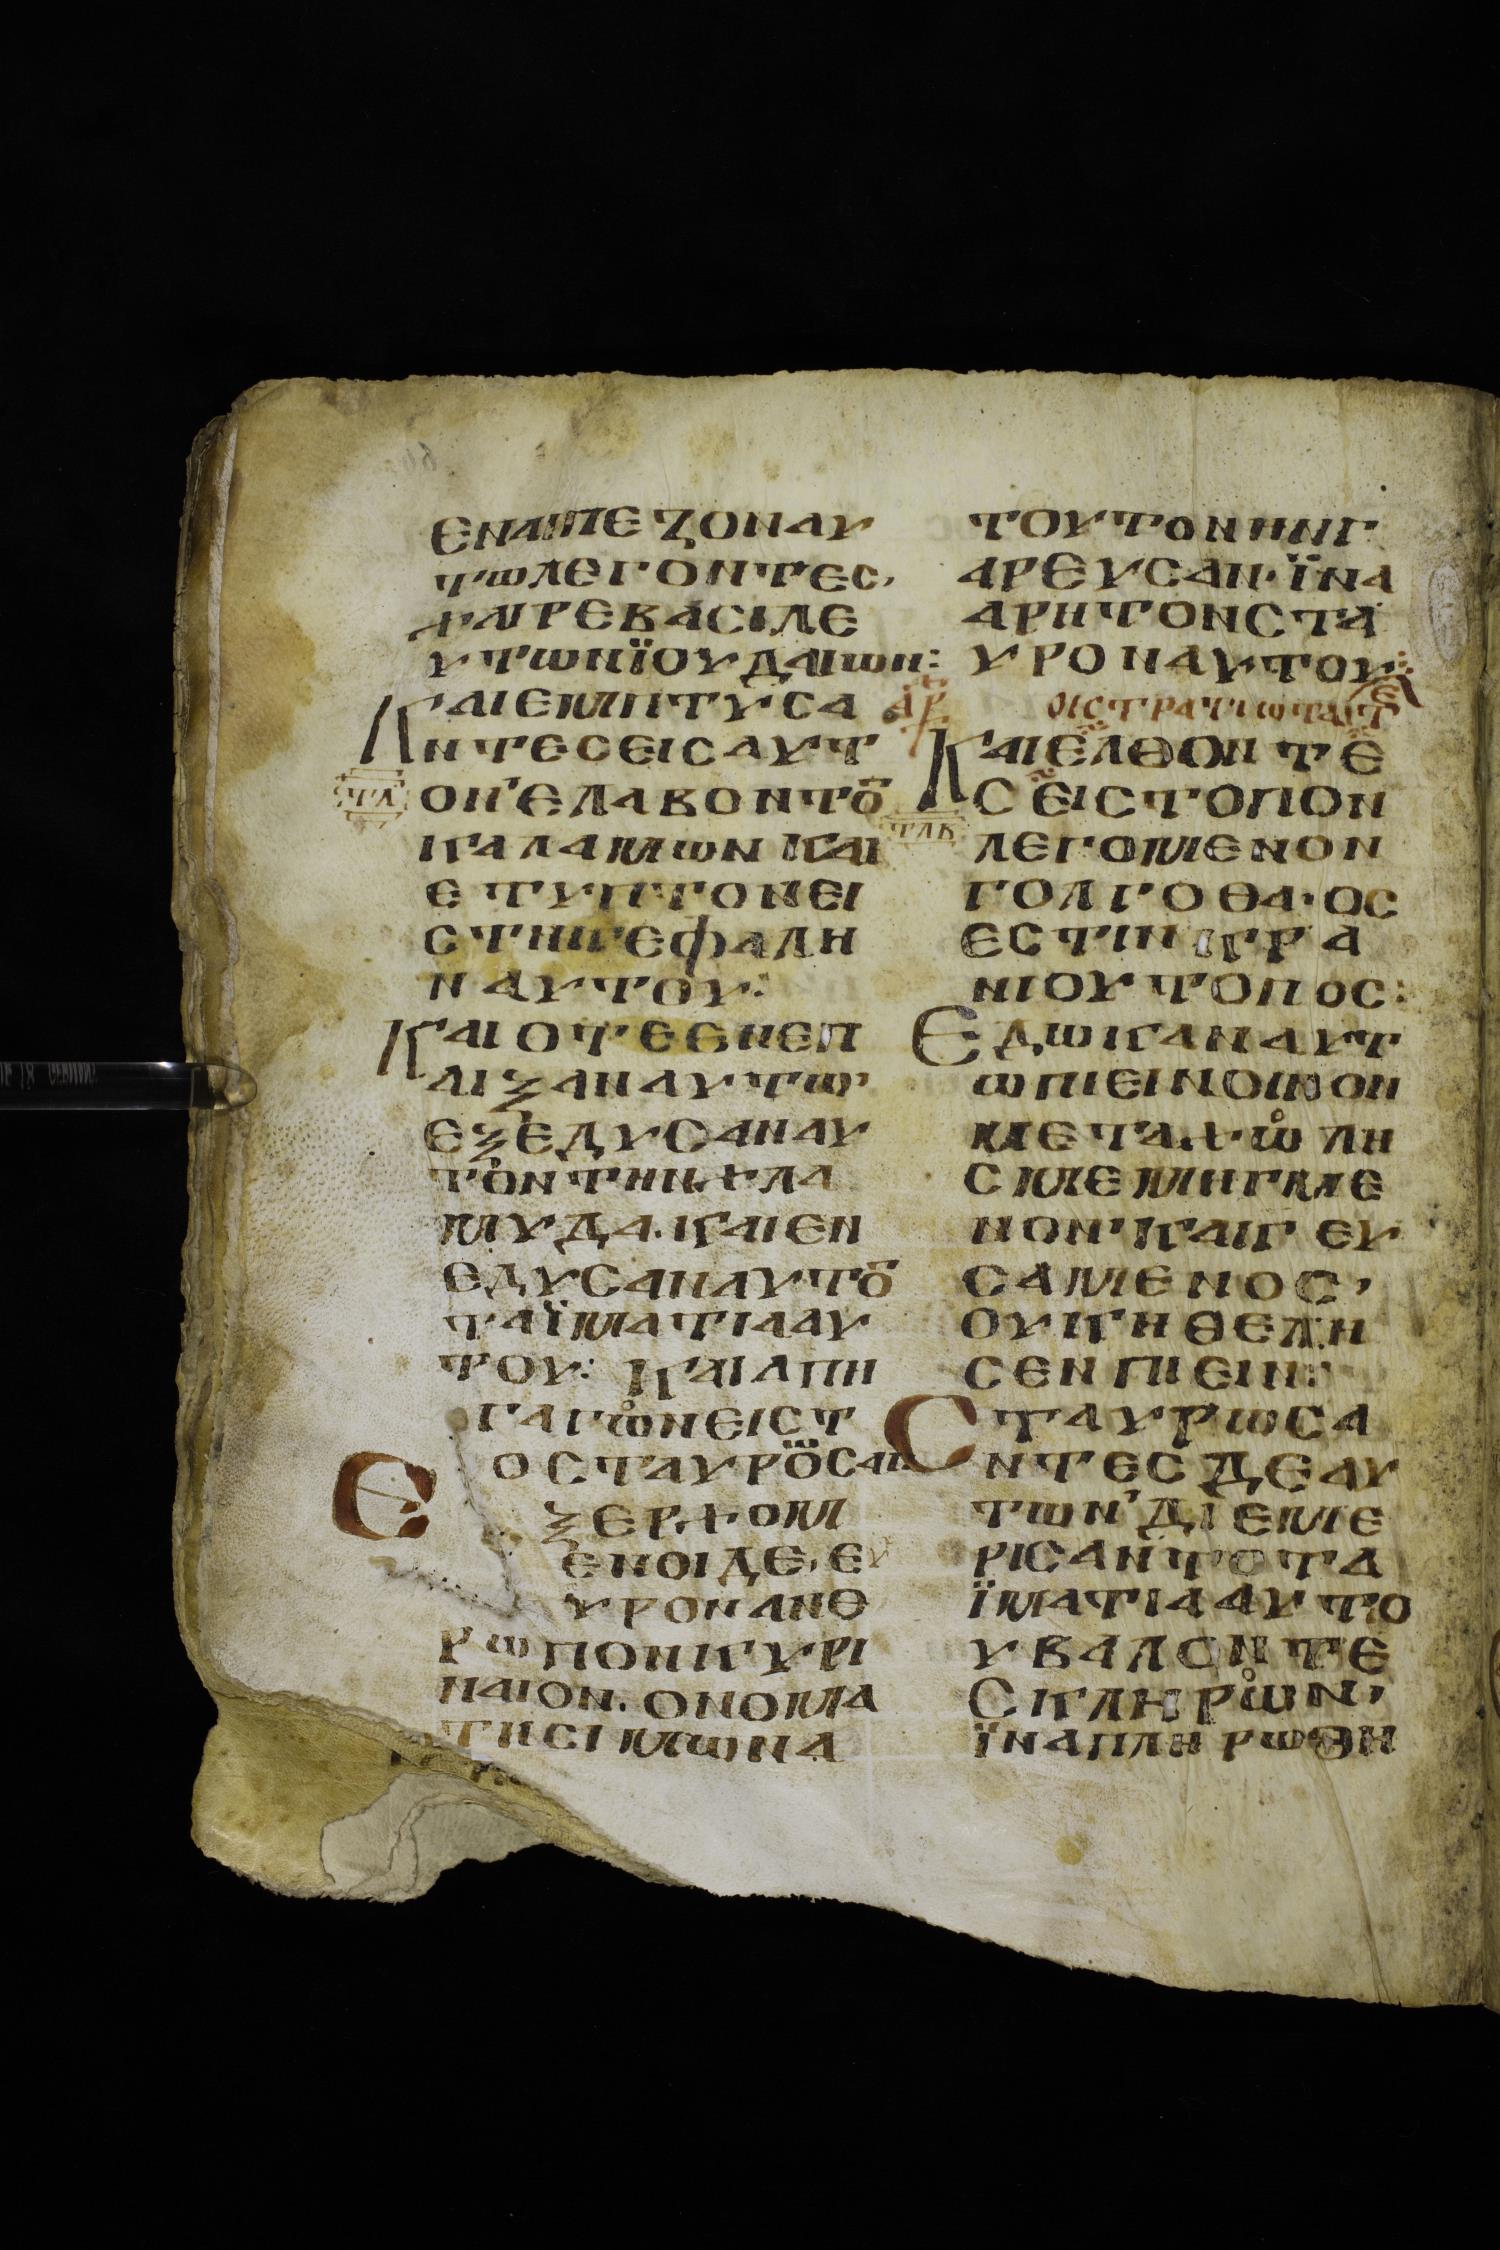 ΕΝΑΙΠΕΖΟΝΑΥ
ΤΩΛΕΓΟΝΤΕС,
ΧΑΙΡΕΒΑСΙΛΕ
ΥΤΩΝΪΟΥΔΑΙΩΝ:
ΚΑΙΕΜΠΤΥСΑ
ΝΤΕСΕΙСΑΥΤ
ΤΛ ΟΝ'ΕΛΑΒΟΝΤΟ̅
ΚΑΛΑΜΩΝΚΑΙ
ΕΤΥΠΤΟΝΕΙ
СΤΗΚΕΦΑΛΗ
ΝΑΥΤΟΥ:
ΚΑΙΟΤΕΕΝΕΠ
ΑΙΞΑΝΑΥΤΩ'
ΕΞΕΔΥСΑΝΑΥ
ΤΟΝΤΗΝΧΛΑ
ΜΥΔΑ·ΚΑΙΕΝ
ΕΔΥСΑΝΑΥΤΟ̅
ΤΑΪΜΑΤΙΑΑΥ
ΤΟΥ: ΚΑΙΑΠΗ
ΓΑΓΩΝΕΙСΤ
ΟСΤΑΥΡΟСΑΙ·
ΕΞΕΡΧΟΜ
ΕΝΟΙΔΕ,ΕΥ
ΥΡΟΝΑΝΘ
ΡΩΠΟΝΚΥΡΙ
ΝΑΙΟΝ·ΟΝΟΜΑ
ΤΗСΙΜΩΝΑ
ΤΟΥΤΟΝΗΝΓ
ΑΡΕΥСΑΝ·ΪΝΑ
ΑΡΗΤΟΝСΤΑ
ΥΡΟΝΑΥΤΟΥ:
ΑΡ ΟΙСΤΡΑΤΙΩΤΑΙΤ
ΚΑΙΕΛΘΟΝΤΕ
СΕΙСΤΟΠΟΝ
ΤΛΒ ΛΕΓΟΜΕΝΟΝ
ΓΟΛΓΟΘΑ·ΟС
ΕСΤΙΝΚΡΑ
ΝΙΟΥΤΟΠΟС:
ΕΔΩΚΑΝΑΥΤ
ΩΠΙΕΙΝΟΙΝΟΝ
ΜΕΤΑΧΩΛΗ
СΜΕΜΗΓΜΕ
ΝΟΝ'ΚΑΙΓΕΥ
СΑΜΕΝΟС,
ΟΥΚΗΘΕΛΗ
СΕΝΠΙΕΙΝ:
СΤΑΥΡΩСΑ
ΝΤΕСΔΕΑΥ
ΤΩΝ'ΔΙΕΜΕ
ΡΙСΑΝΤΟΤΑ
ΪΜΑΤΙΑΑΥΤΟ
ΥΒΑΛΟΝΤΕ
СΚΛΗΡΩΝ,
ΪΝΑΠΛΗΡΩΘΗ